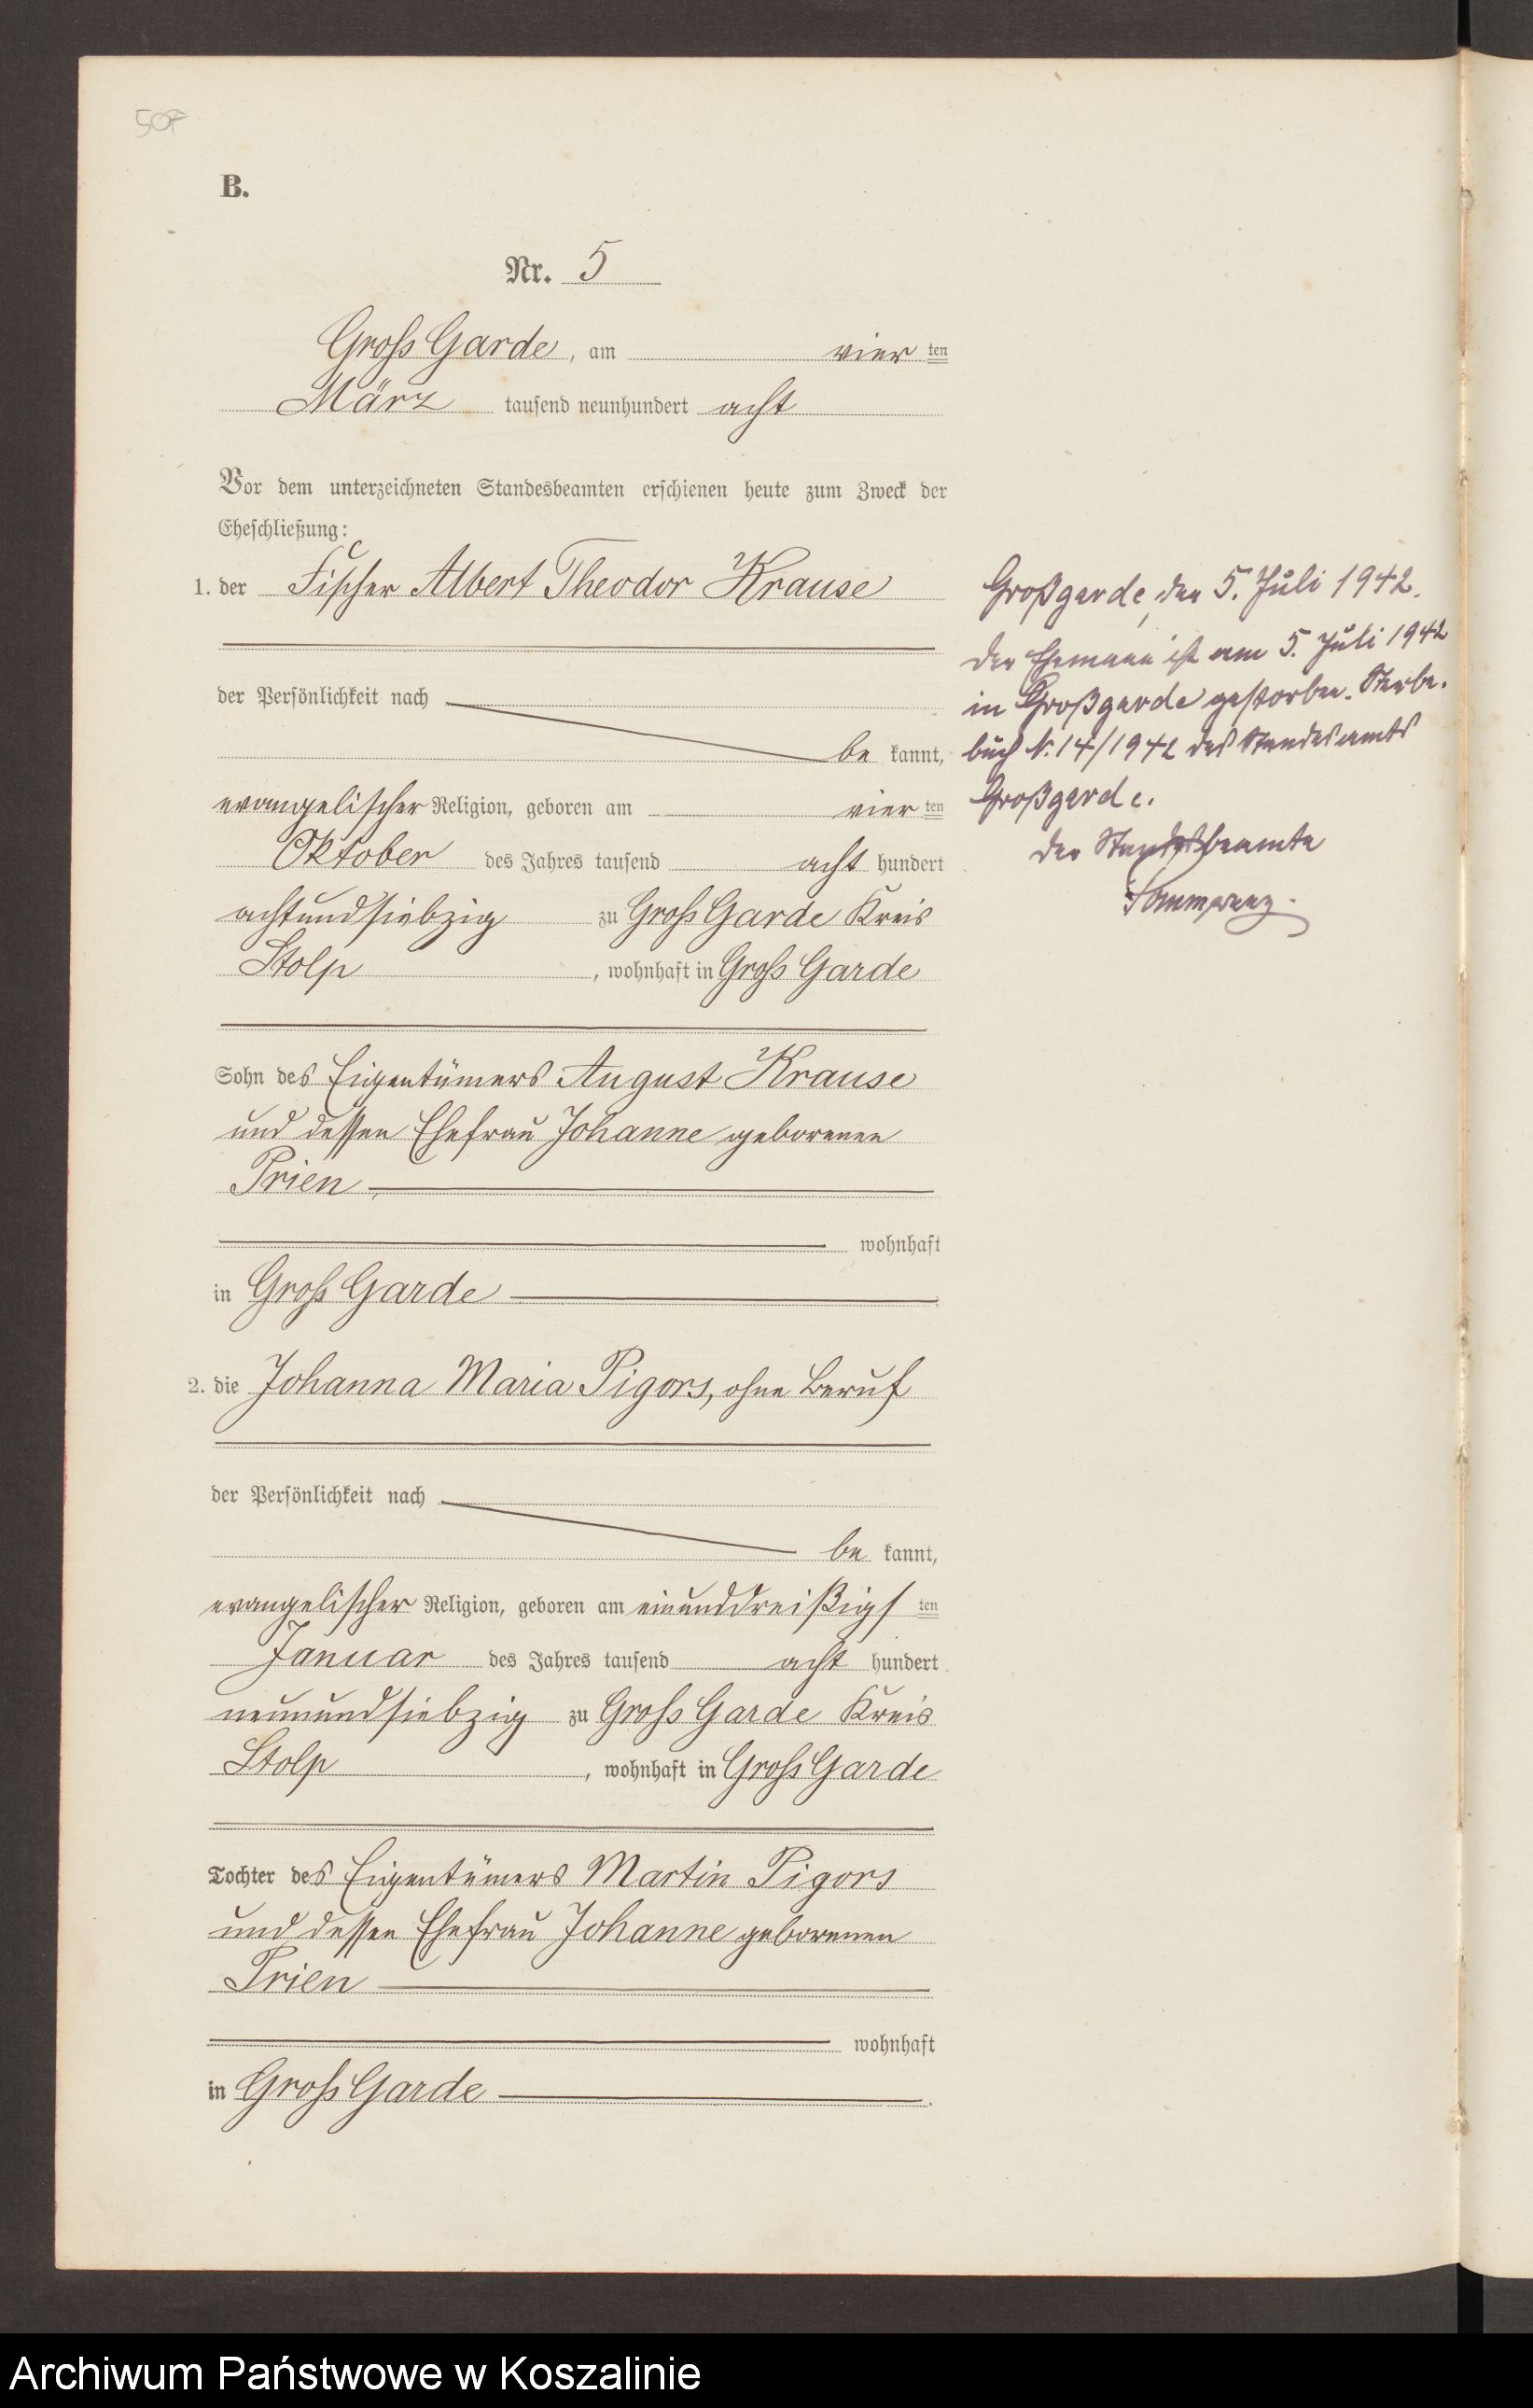 507
B.
Nr. 5
Gross Garde, am vier ten
März tausend neunhundert acht
Vor dem unterzeichneten Standesbeamten erschienen heute zum Zweck der
Eheschließung:
1. der Fischer Albert Theodor Krause
der Persönlichkeit nach
be kannt,
evangelischer Religion, geboren am vier ten
Oktober des Jahres tausend acht hundert
achtundsiebzig zu Gross Garde Kreis
Stolp, wohnhaft in Gross Garde
Sohn des Eigentümers August Krause
und dessen Ehefrau Johanne geborenen
Prien
wohnhaft
in Gross Garde
2. die Johanna Maria Pigors, ohne Beruf
der Persönlichkeit nach
be kannt,
evangelischer Religion, geboren am einunddreißigs ten
Januar des Jahres tausend acht hundert
neunundsiebzig zu Gross Garde Kreis
Stolp, wohnhaft in Gross Garde
Tochter des Eigentümers Martin Pigors
und dessen Ehefrau Johanne geborenen
Prien
wohnhaft
in Gross Garde.
Großgarde, den 5. Juli 1942.
Der Ehemann ist am 5. Juli 1942
in Großgarde gestorben. Sterbe-
buch N. 14/1942 des Standesamts
Großgarde.
Der Standesbeamte
Archiwum Państwowe w Koszalinie